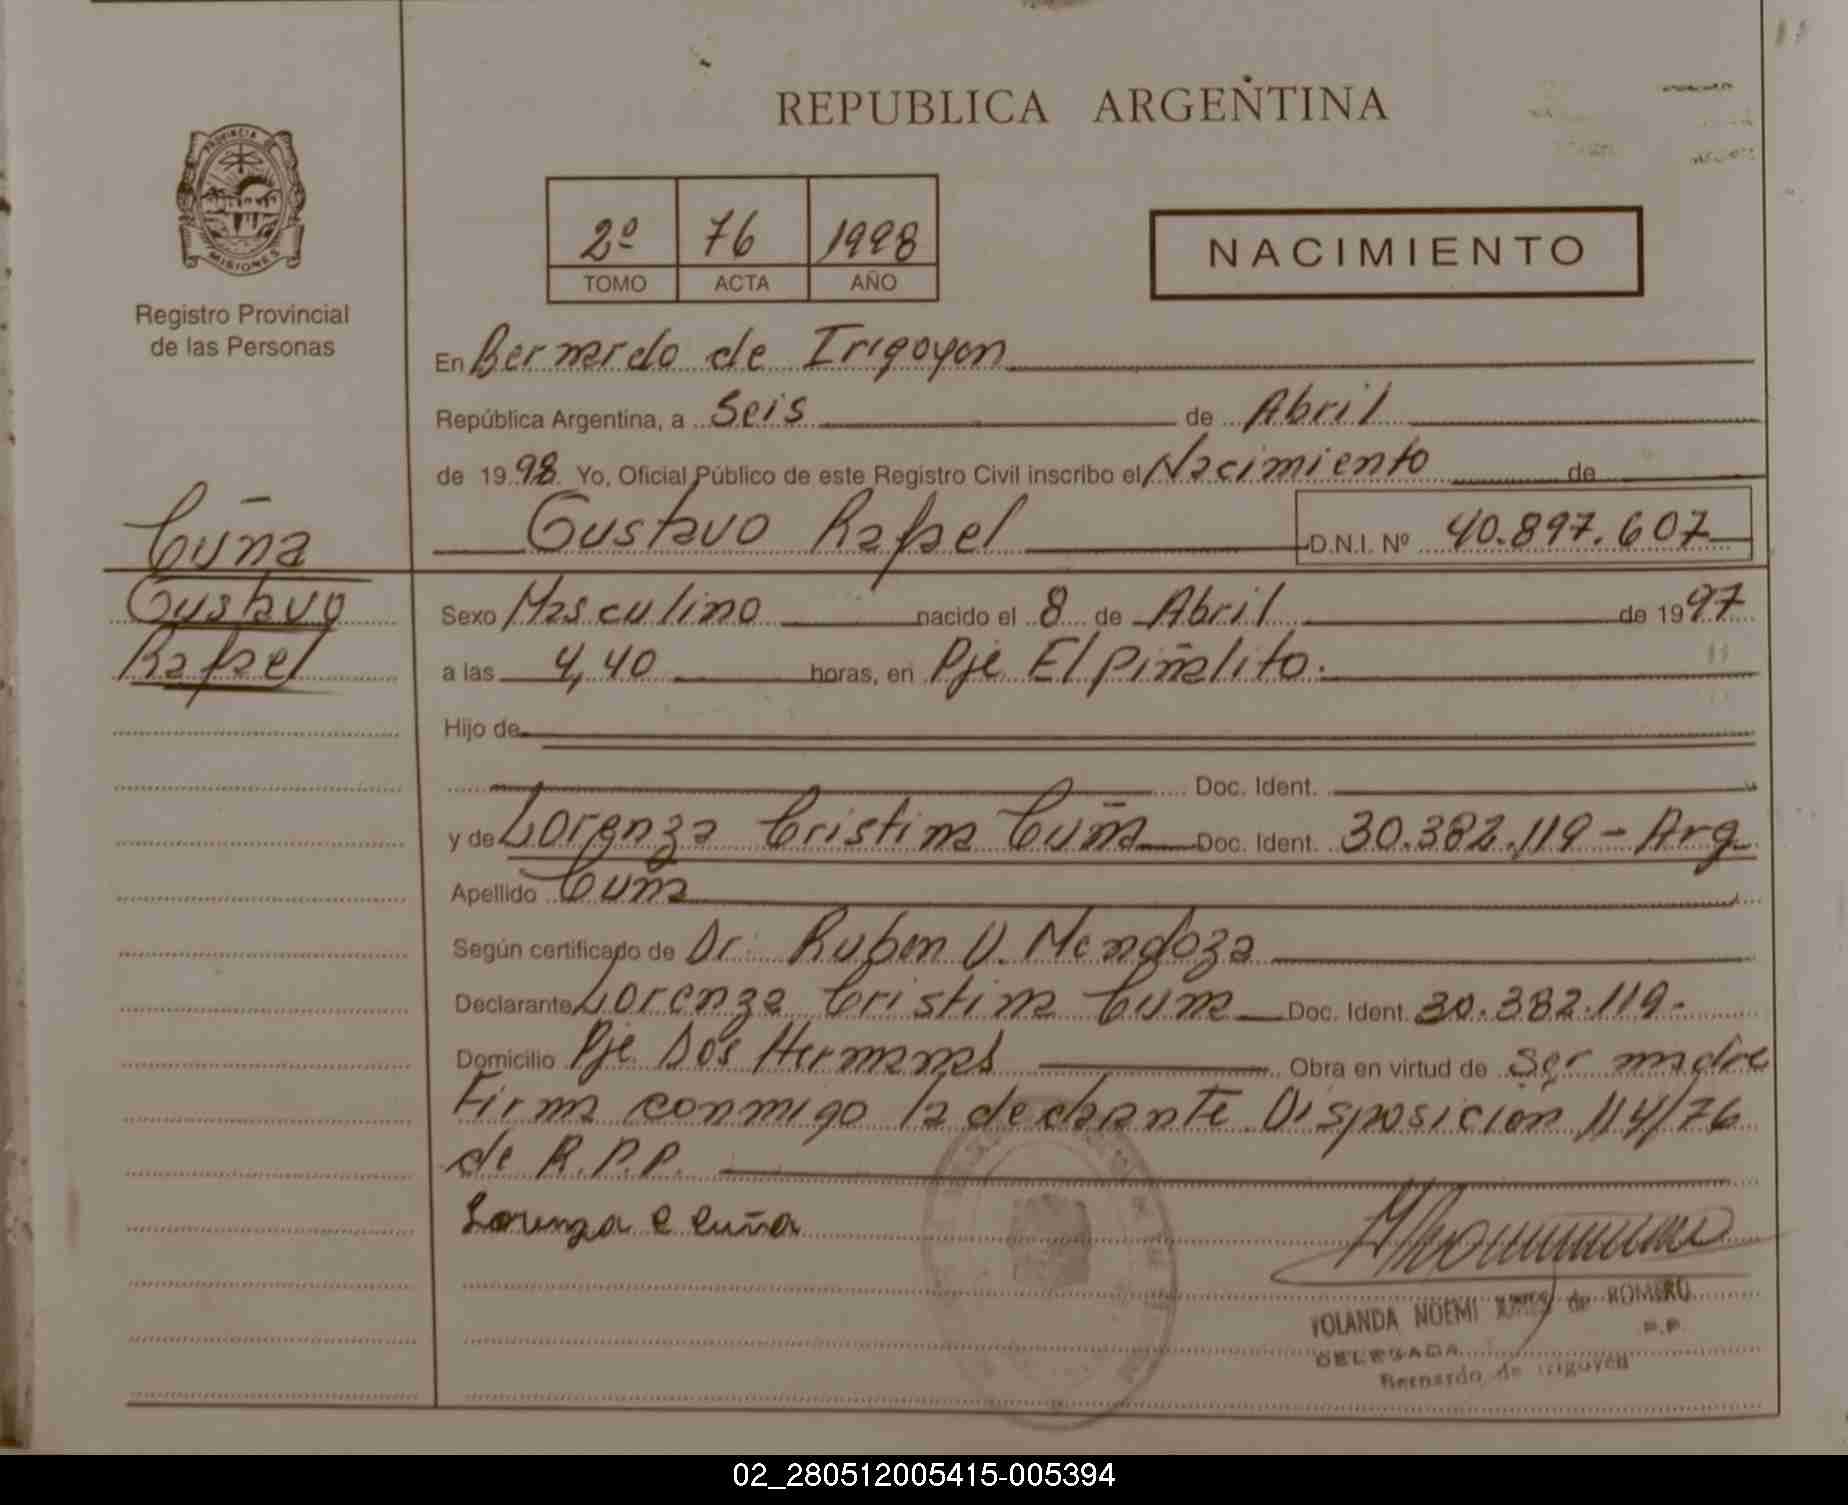 REPUBLICA ARGENTINA
PROVINCIA DE
MISIONES
Registro Provincial
de las Personas
2º 76 1998
TOMO ACTA AÑO
NACIMIENTO
En Bernardo de Irigoyen
República Argentina, a Seis de Abril
de 1998 Yo, Oficial Público de este Registro Civil inscribo el Nacimiento de
Gustavo Rafael D.N.I. Nº 40.897.607
Cuña
Gustavo
Rafael
Sexo Masculino nacido el 8 de Abril de 1997
a las 4,40 horas, en Pje El piñalito.
Hijo de
Doc. Ident.
y de Lorenza Cristina Cuña Doc. Ident. 30.382.119 - Arg.
Apellido Cuña
Según certificado de Dr. Ruben V. Mendoza
Declarante Lorenza Cristina Cuña Doc. Ident. 30.382.119.-
Domicilio Pje Dos Hermanas Obra en virtud de Ser madre
Firma conmigo la declarante Disposición 114/76
de R.P.P.
Lorenza C Cuña
YOLANDA NOEMI de ROMERO
DELEGADA R.P.P.
Bernardo de Irigoyen
02_280512005415-005394